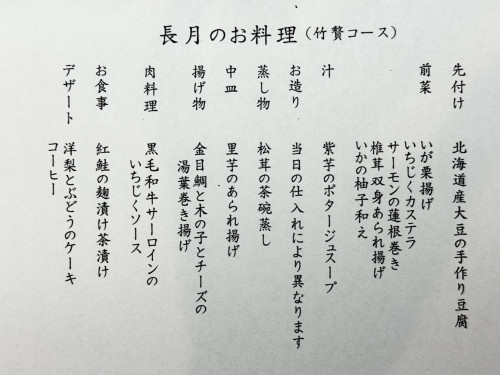 長月のお料理(竹贅コース)
先付け 北海道産大豆の手作り豆腐
前菜 いが栗揚げ
いちじくカステラ
サーモンの蓮根巻き
椎茸双身あられ揚げ
いかの柚子和え
汁 紫芋のポタージュスープ
お造り 当日の仕入れにより異なります
蒸し物 松茸の茶碗蒸し
中皿 里芋のあられ揚げ
揚げ物 金目鯛と木の子とチーズの
湯葉巻き揚げ
肉料理 黒毛和牛サーロインの
いちじくソース
お食事 紅鮭の麹漬け茶漬け
デザート 洋梨とぶどうのケーキ
コーヒー